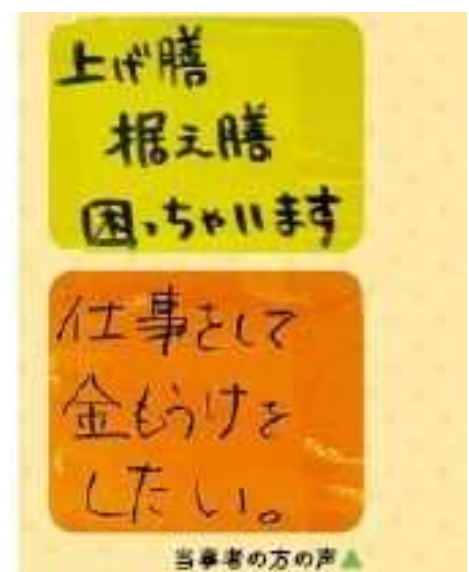 上げ膳
据え膳
困っちゃいます
仕事をして
金もうけを
したい。
当事者の方の声▲